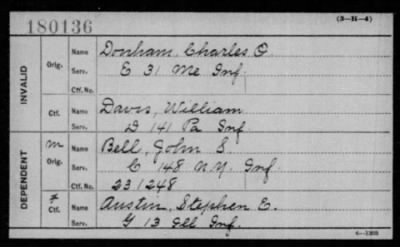 180136
(3-H-4)
INVALID
Orig.
Name Donham, Charles O.
Serv. E 31 Me Inf.
Ctf. No.
Ctf.
Name Davis, William
Serv. D 141 Pa Inf
DEPENDENT
m Orig.
Name Bell, John S.
Serv. C 148 N.Y. Inf
Ctf. No. 231248
Ctf.
Name Austin, Stephen E.
Serv. G 13 Ill Inf.